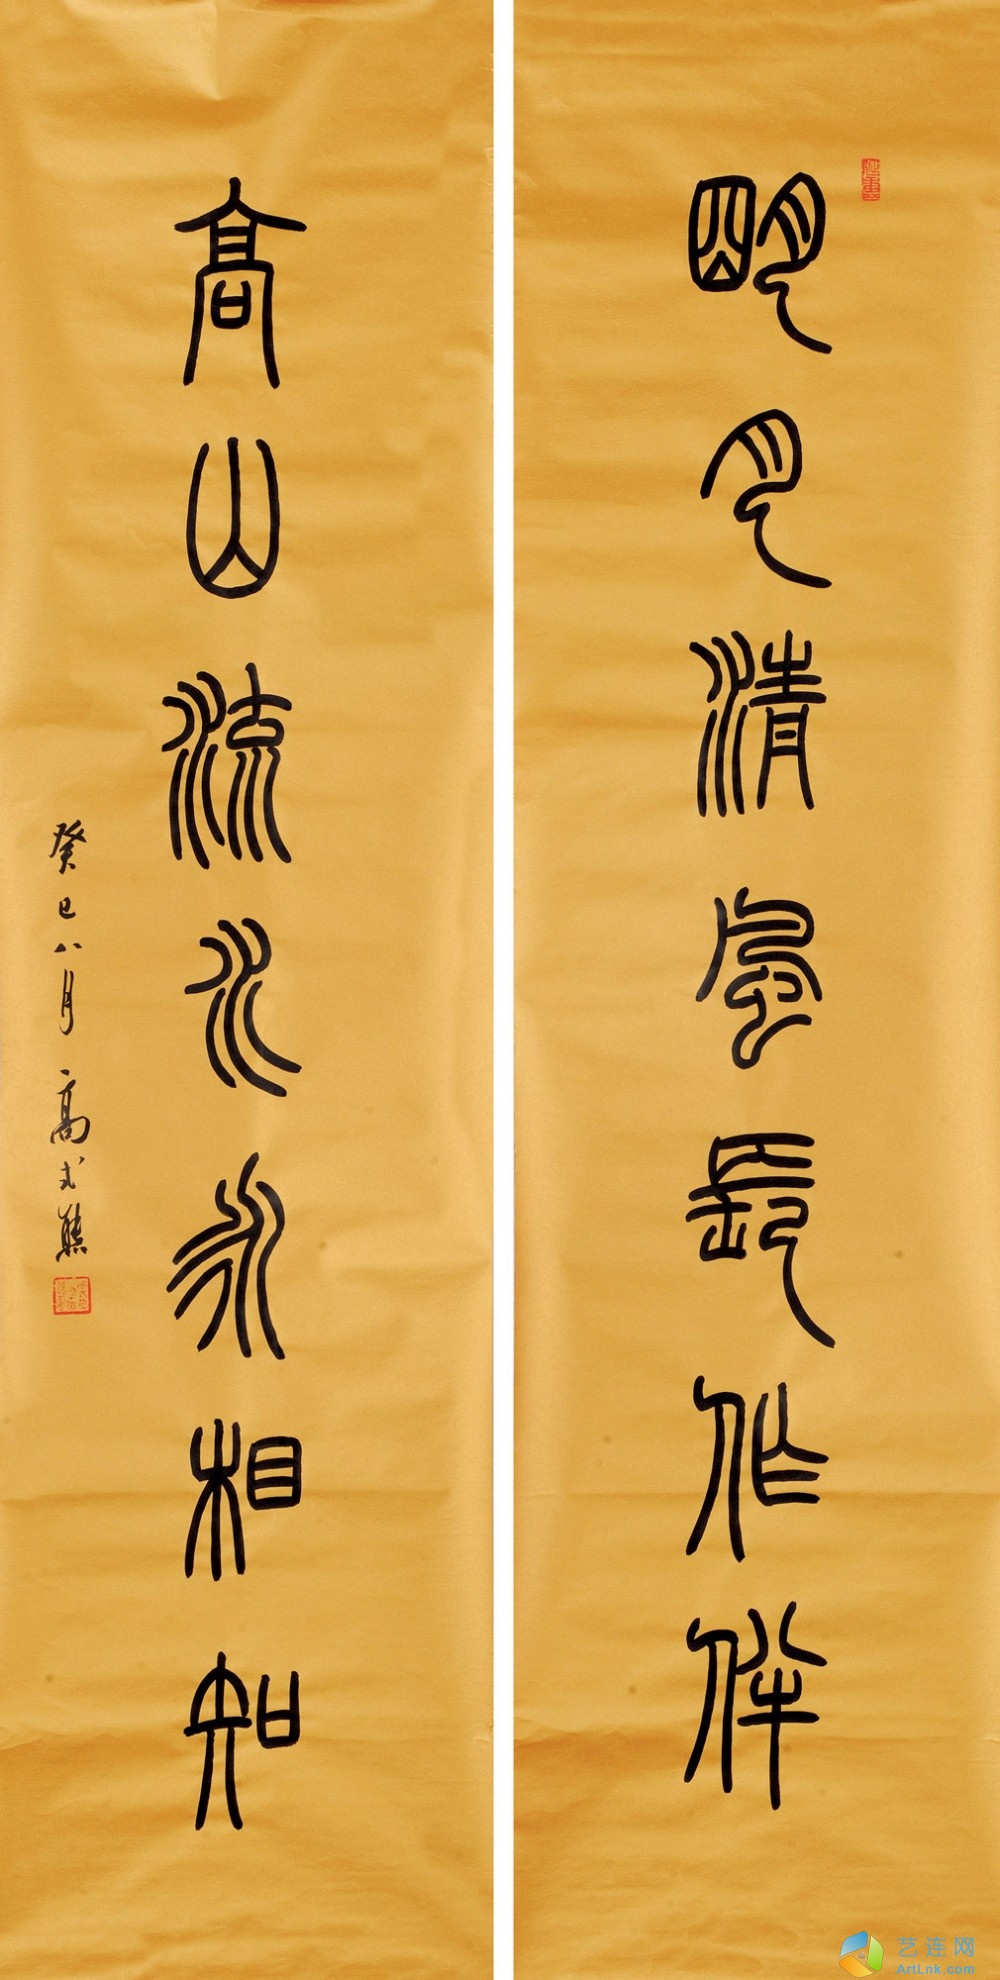 明月清風長作伴
高山流水永相知
癸巳八月高式熊
艺连网
ArtLnk.com